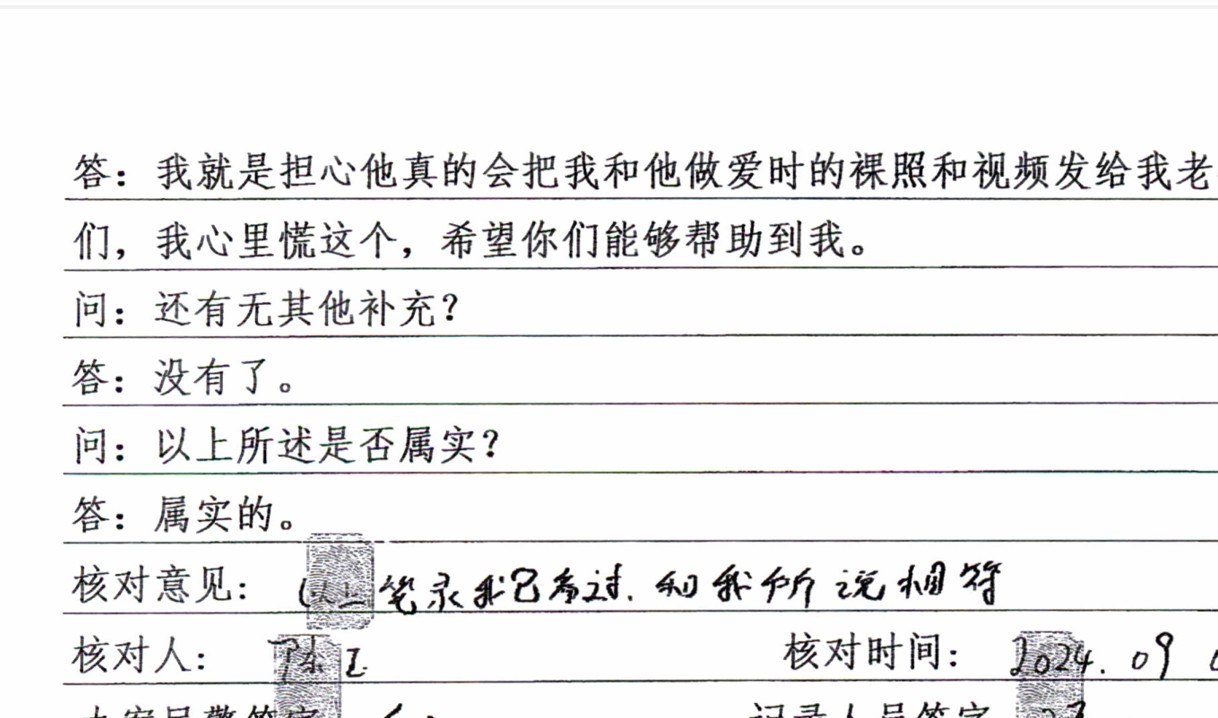 答：我就是担心他真的会把我和他做爱时的裸照和视频发给我老
们，我心里慌这个，希望你们能够帮助到我。
问：还有无其他补充？
答：没有了。
问：以上所述是否属实？
答：属实的。
核对意见：以上笔录我已看过，和我所说相符
核对人： 核对时间：2024.09
办案民警签字 记录人员签字